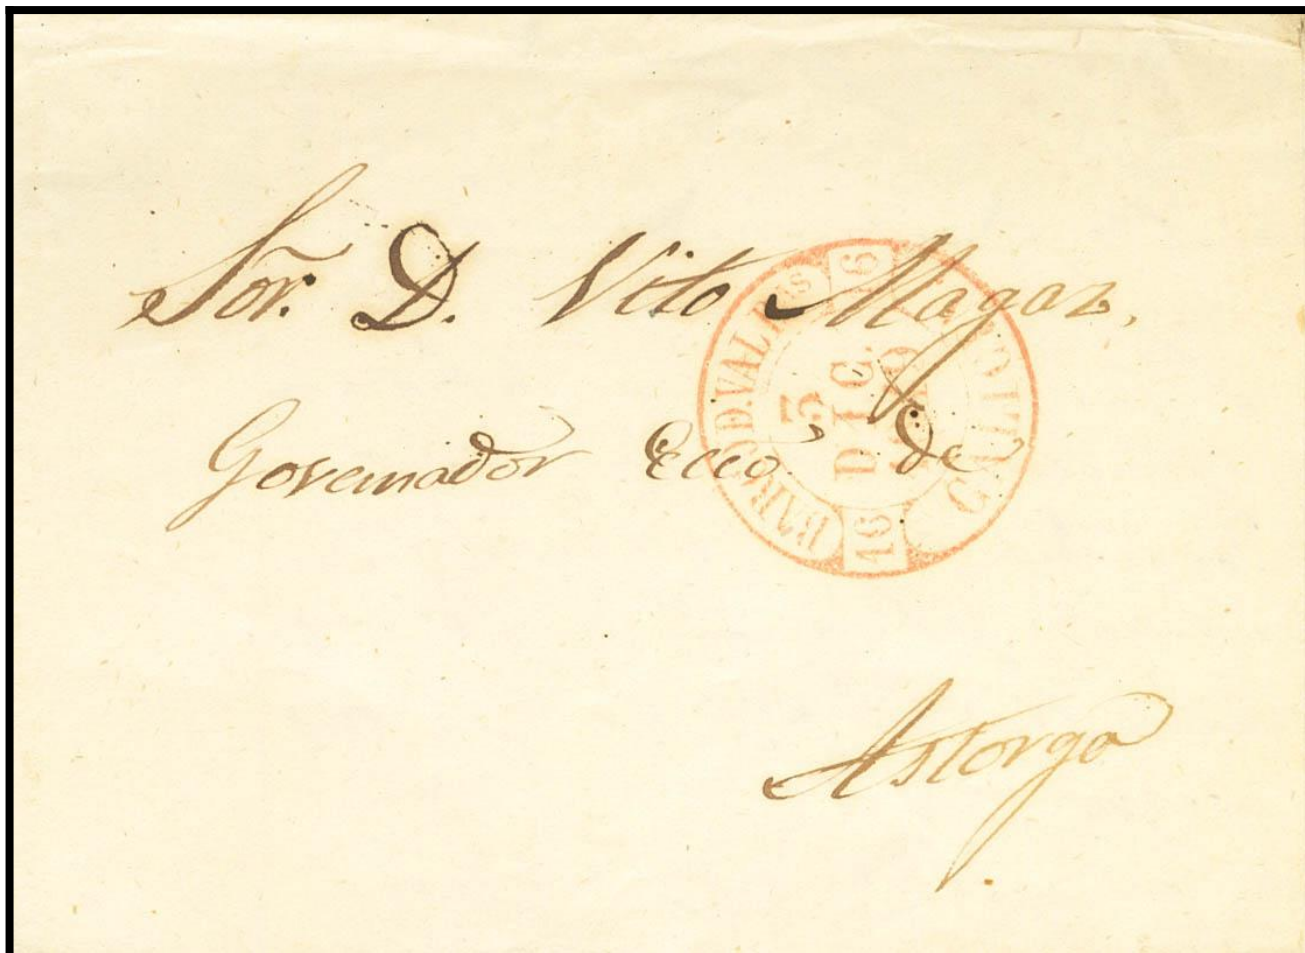 Sor. D. Vito Magaz.
Governador Ecco. de
Astorga
BARCO D. VALRAS
16
3
DIC.
GALICIA